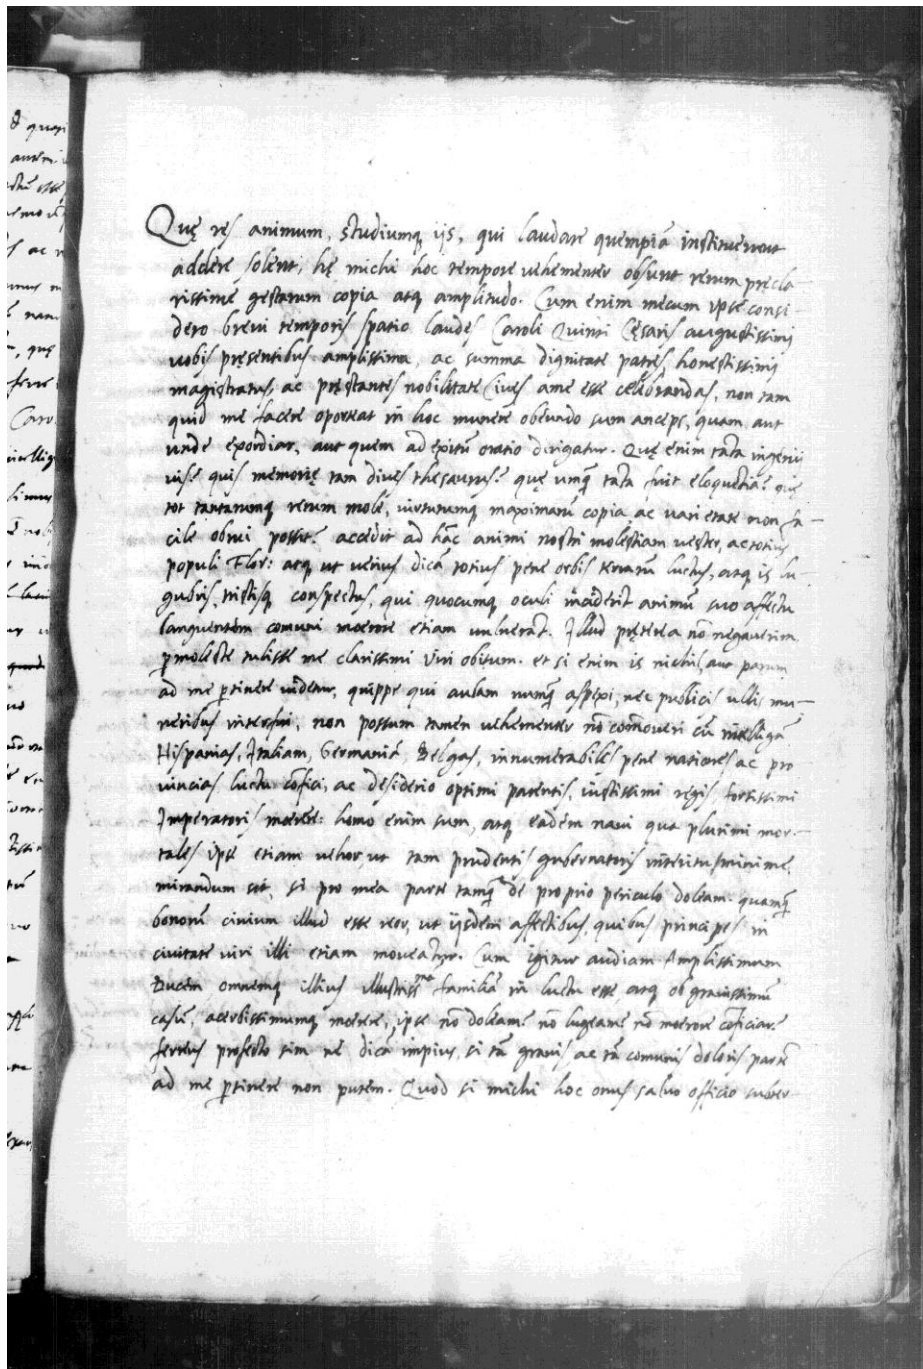 Quę res animum, studiumq, ijs, qui laudare quempiā instituerunt
addere solent, hę michi hoc tempore uehementer obsunt rerum pręcla
rissime gestarum copia atq amplitudo. Cum enim mecum ipse consi
dero breui temporis spatio laudes Caroli Quinti Cęsaris augustissimi
uobis pręsentibus amplissima, ac summa dignitate patres, honestissimi
magistratus, ac pręstantes nobilitate Ciues a me esse celebrandas, non tam
quid me facere oporteat in hoc munere obeundo sum anceps, quam aut
unde exordiar, aut quem ad exitū oratio dirigatur. Quę enim tāta ingenii
uis? quis memorię tam diues thesaurus? quę umq̄ tāta fuit eloquētia? quę
tot tantarumq rerum mole, uirtutumq maximarū copia ac uarietate non fa-
cile obrui possit? accedit ad hāc animi nostri molestiam uester, ac totius
populi Flor: atq ut uerius dicā totius pene orbis terrarū luctus, atq is lu
gubris, tristisq conspectus, qui quocumq oculi inciderīt animū suo affectu
languentem comuni moerore etiam uulnerāt. Illud pręterea nō negauerim
pmoleste tulisse me clarissimi uiri obitum. et si enim is nichil, aut parum
ad me ptinere uidetur, quippe qui aulam numq̄ aspexi, nec publicis ullis mu-
neribus interfui, non possum tamen uehementer nō cōmoueri cū intelligā
Hispanias, Italiam, Germaniā, Belgas, innumerabiles pene nationes ac pro
uincias luctu cōfici, ac desiderio optimi parentis, iustissimi regis fortissimi
Imperatoris moerere: homo enim sum, atq eadem naui qua plurimi mor-
tales ipse etiam uehor, ut tam prudentis gubernatoris interitus minime
mirandum sit, si pro mea parte tamq̄ de proprio periculo doleam. quamq̄
bonorū ciuium illud esse reor, ut ijsdem affectibus, quibus principes in
ciuitate uiri illi etiam moueātur. Cum igitur audiam Amplissimum
Ducem omnemq illius illustriss^ma familiā in luctu esse, atq ob grauissimū
casū, acerbissimumq moerere, ipse nō doleam? nō lugeam? nō moerore cōficiar?
ferreus profecto sim ne dicā impius, si tā grauis ac tā comunis doloris partē
ad me ptinere non putem. Quod si michi hoc onus saluo officio subter